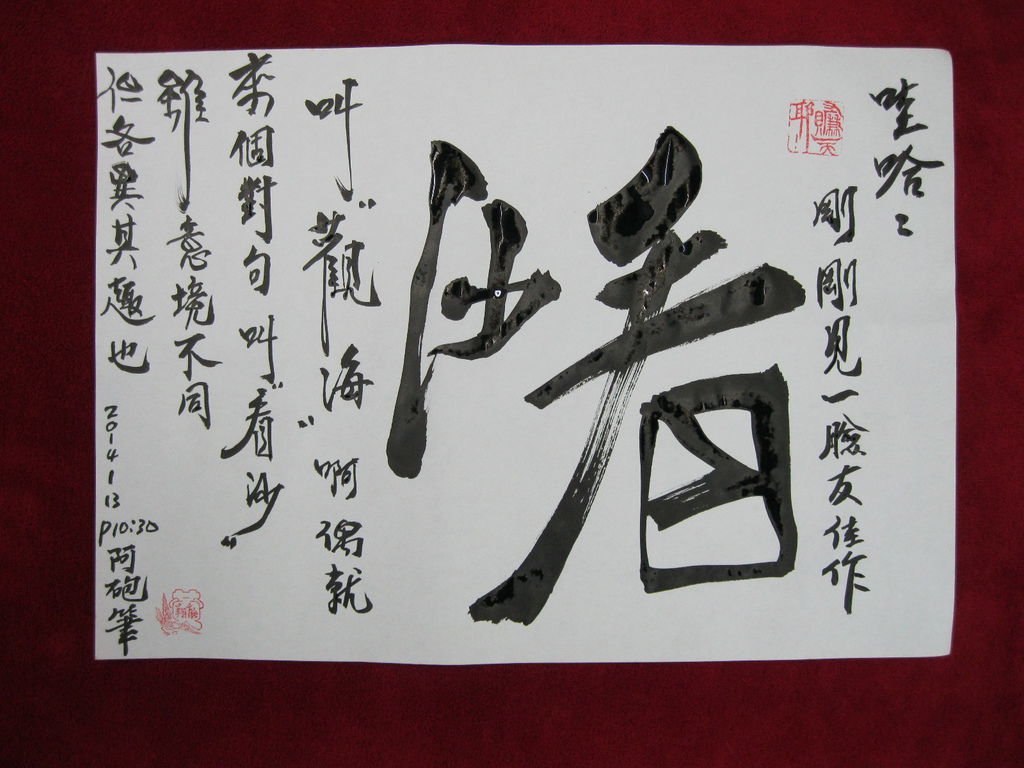 哇哈〻
剛剛見一臉友佳作
看沙
叫"觀海"啊偶就
來個對句叫"看沙"
雖意境不同
但各異其趣也
2014 1 13
P10:30
阿砲筆